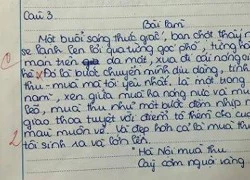 Câu 3.
Bài làm
Một buổi sáng thức giấc, bạn chợt thấy
se lạnh len lỏi qua từng góc phố, từng
man trên da mát, xua đi cái nóng
hè. Đó là bước chuyển mình dịu dàng, tinh
thu - mùa mà tôi yêu nhất, là một trong
năm, xen giữa mùa hạ nóng nực và mùa
lẽo, mùa thu như một bước đệm nhịp
giao thoa tuyệt vời điểm tô thêm cho cuộ
màu muôn vẻ. Và đẹp hơn cả là mùa thu
tôi sinh ra và lớn lên.
"Hà Nội mùa thu
Cây cơm nguội vàng
2